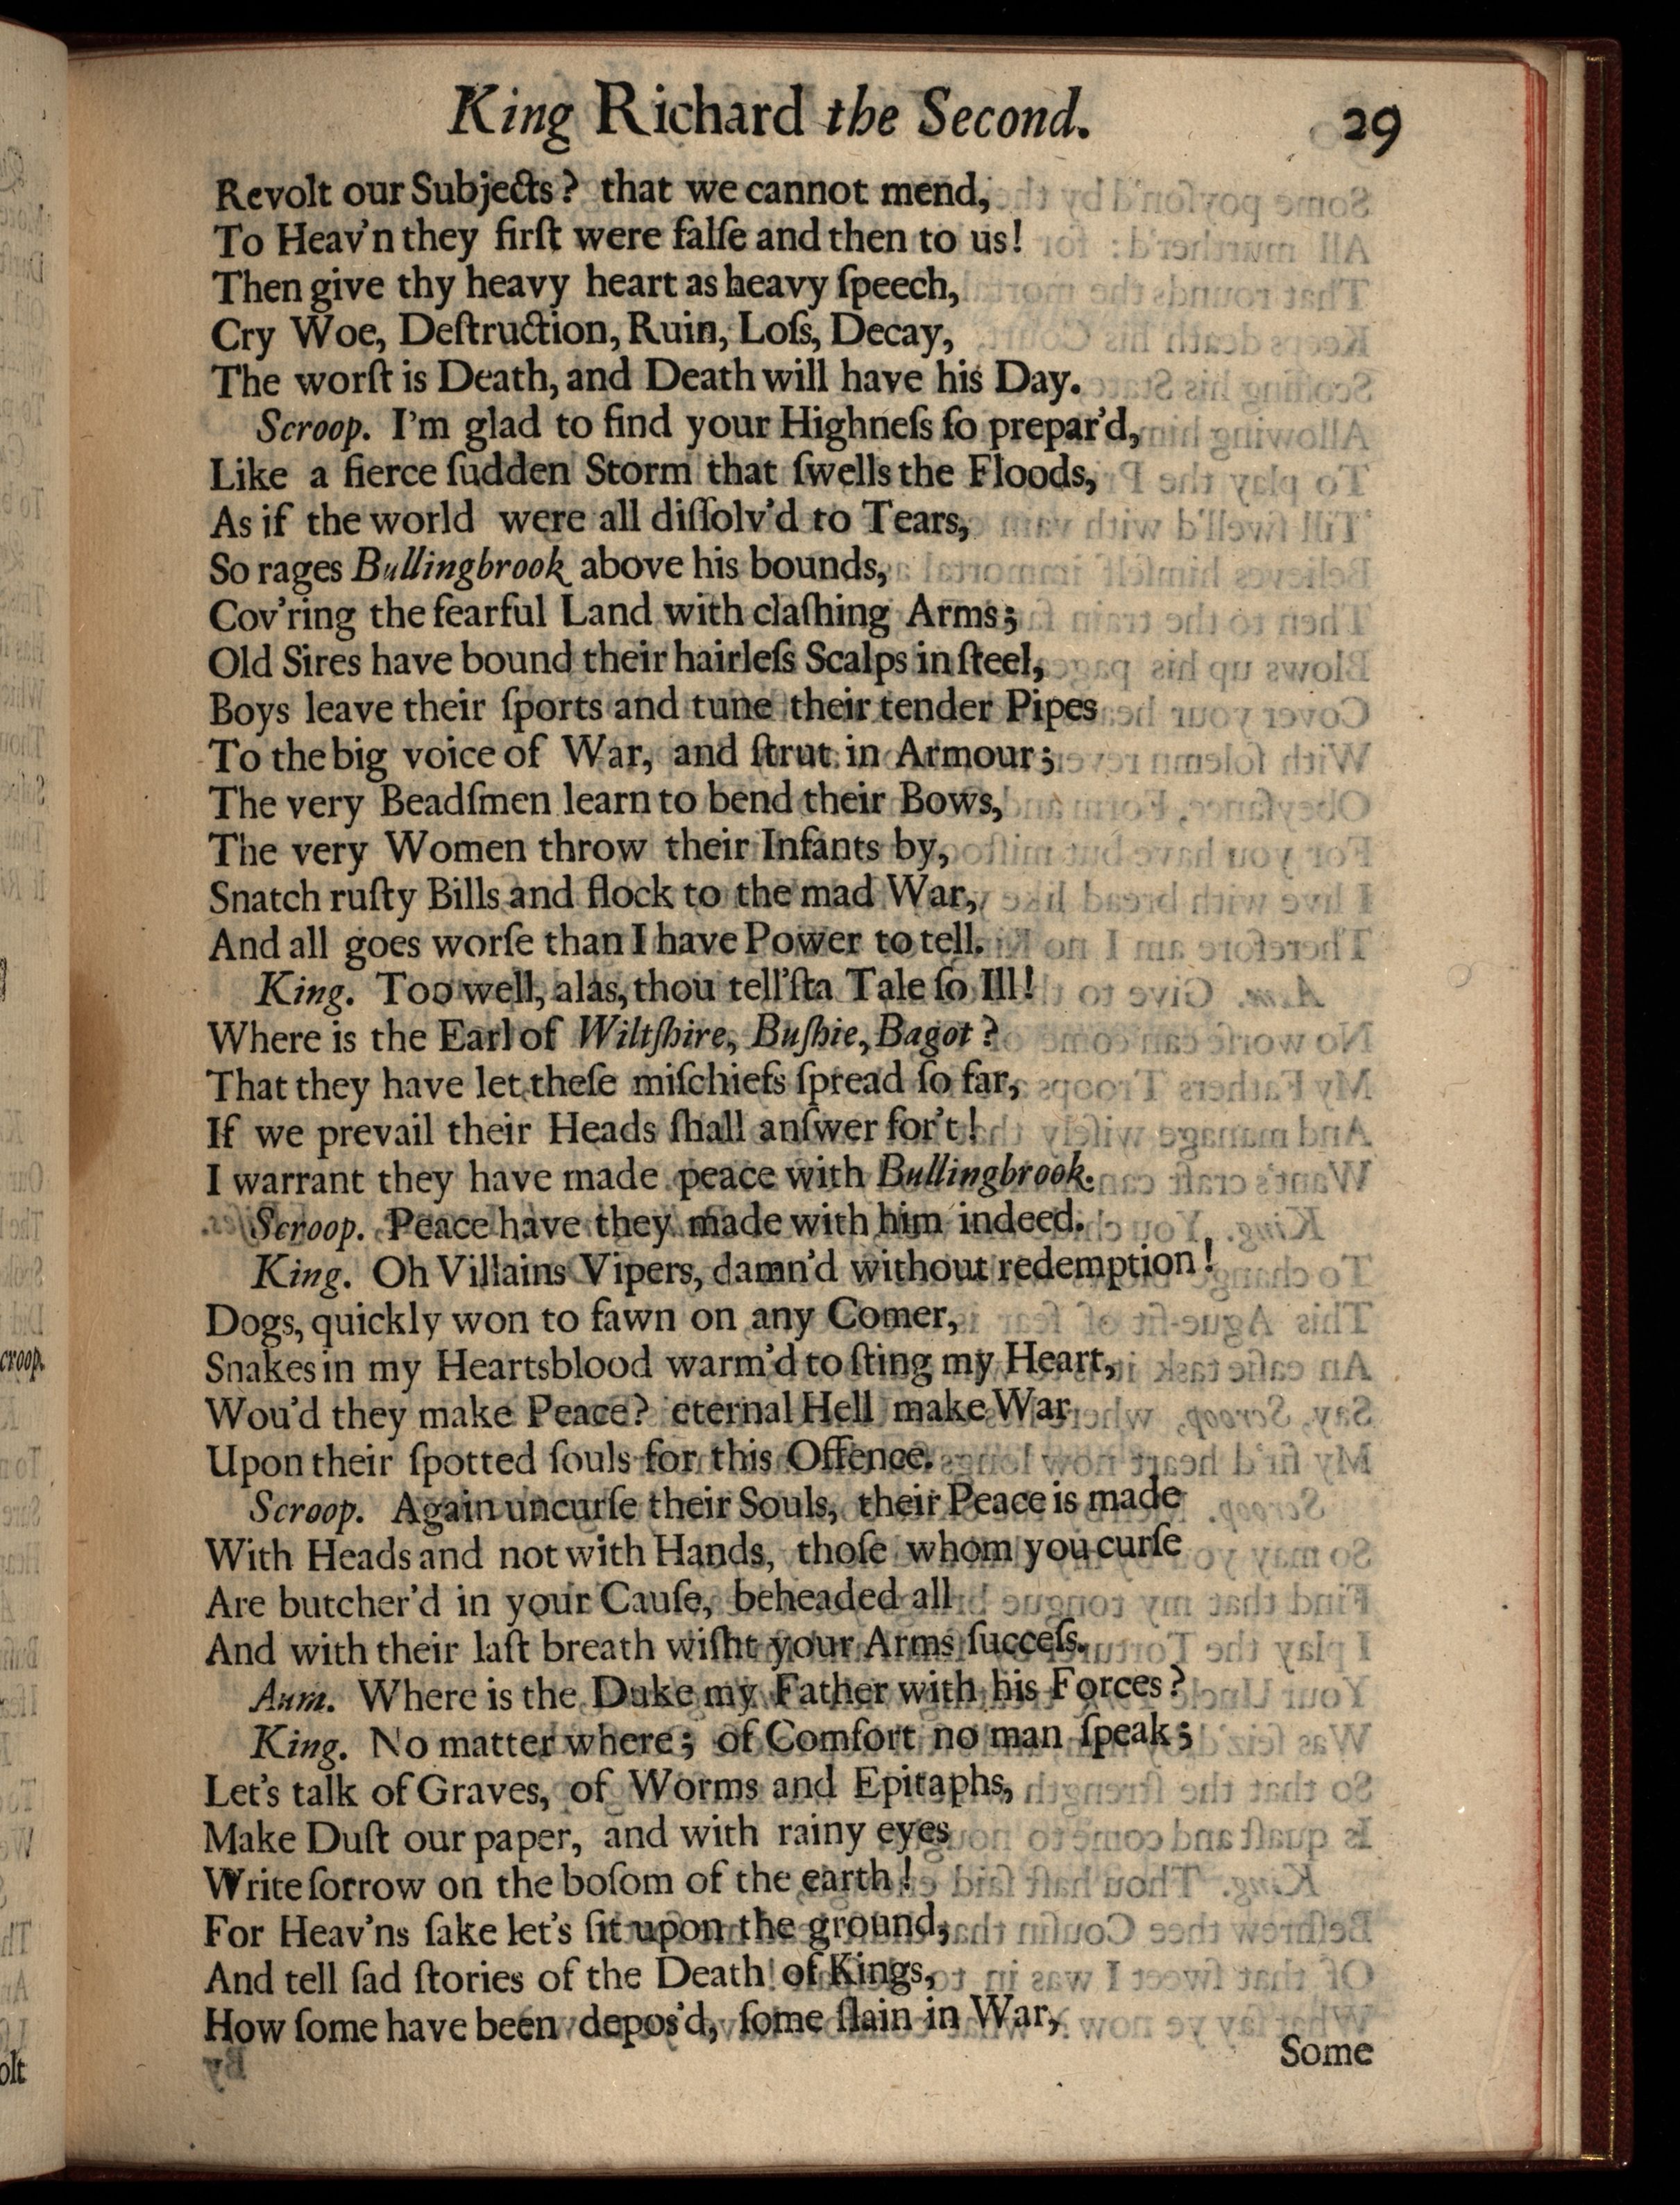 King Richard the Second. 29
Revolt our Subjects? that we cannot mend,
To Heav'n they firſt were falſe and then to us!
Then give thy heavy heart as heavy ſpeech,
Cry Woe, Deſtruction, Ruin, Loſs, Decay,
The worſt is Death, and Death will have his Day.
Scroop. I'm glad to find your Highneſs ſo prepar'd,
Like a fierce ſudden Storm that ſwells the Floods,
As if the world were all diſſolv'd to Tears,
So rages Bullingbrook above his bounds,
Cov'ring the fearful Land with claſhing Arms;
Old Sires have bound their hairleſs Scalps in ſteel,
Boys leave their ſports and tune their tender Pipes
To the big voice of War, and ſtrut in Armour;
The very Beadſmen learn to bend their Bows,
The very Women throw their Infants by,
Snatch ruſty Bills and flock to the mad War,
And all goes worſe than I have Power to tell.
King. Too well, alas, thou tell'ſt a Tale ſo Ill!
Where is the Earl of Wiltſhire, Buſhie, Bagot?
That they have let theſe miſchiefs ſpread ſo far,
If we prevail their Heads ſhall anſwer for't!
I warrant they have made peace with Bullingbrook.
Scroop. Peace have they made with him indeed.
King. Oh Villains Vipers, damn'd without redemption!
Dogs, quickly won to fawn on any Comer,
Snakes in my Heartsblood warm'd to ſting my Heart,
Wou'd they make Peace? eternal Hell make War
Upon their ſpotted ſouls for this Offence.
Scroop. Again uncurſe their Souls, their Peace is made
With Heads and not with Hands, thoſe whom you curſe
Are butcher'd in your Cauſe, beheaded all
And with their laſt breath wiſht your Arms ſucceſs.
Aum. Where is the Duke my Father with his Forces?
King. No matter where; of Comfort no man ſpeak;
Let's talk of Graves, of Worms and Epitaphs,
Make Duſt our paper, and with rainy eyes
Write ſorrow on the boſom of the earth!
For Heav'ns ſake let's ſit upon the ground,
And tell ſad ſtories of the Death of Kings,
How ſome have been depos'd, ſome ſlain in War,
Some